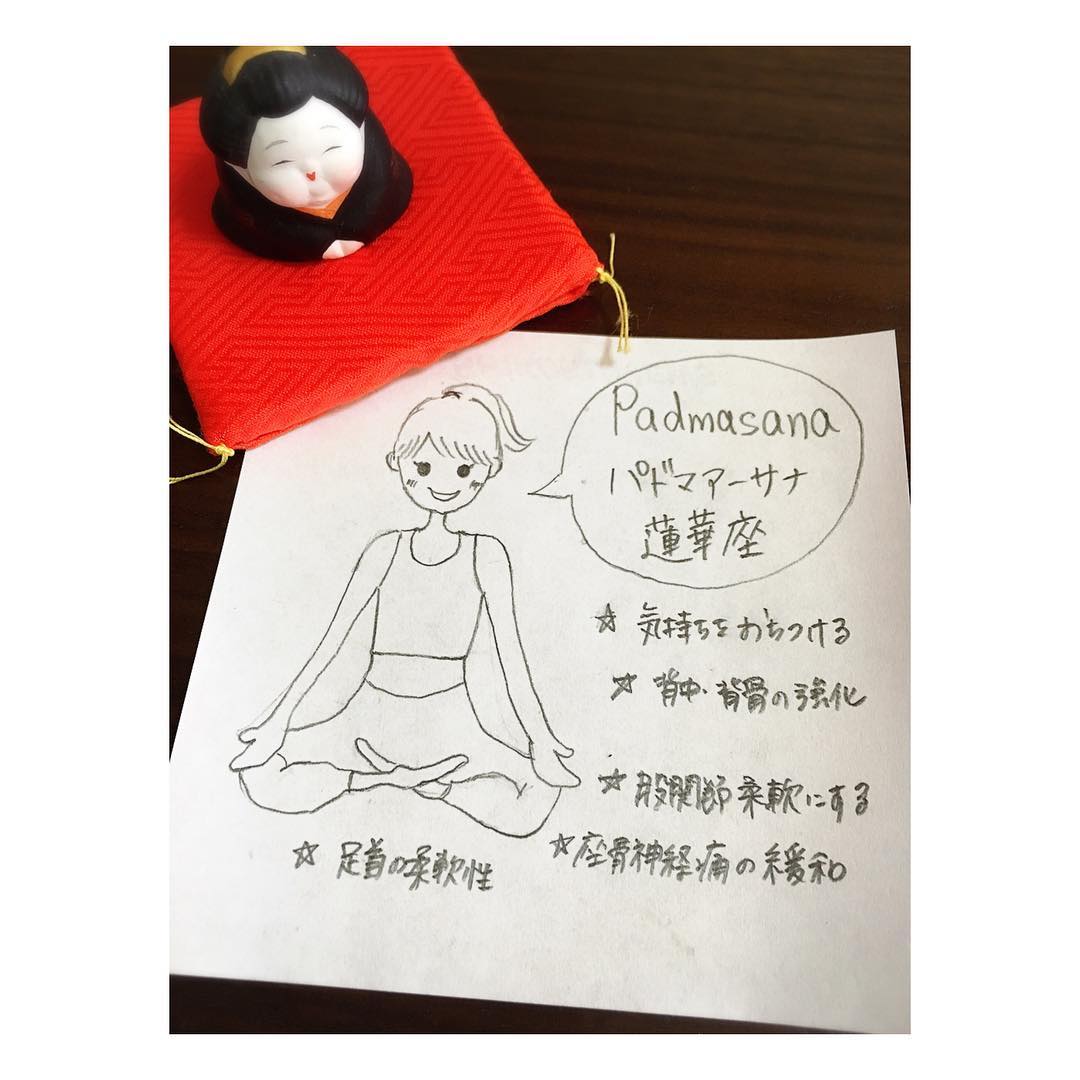 Padmasana
パドマアーサナ
蓮華座
☆ 気持ちをおちつける
☆ 背中・背骨の強化
☆ 股関節柔軟にする
☆座骨神経痛の緩和
☆ 足首の柔軟性